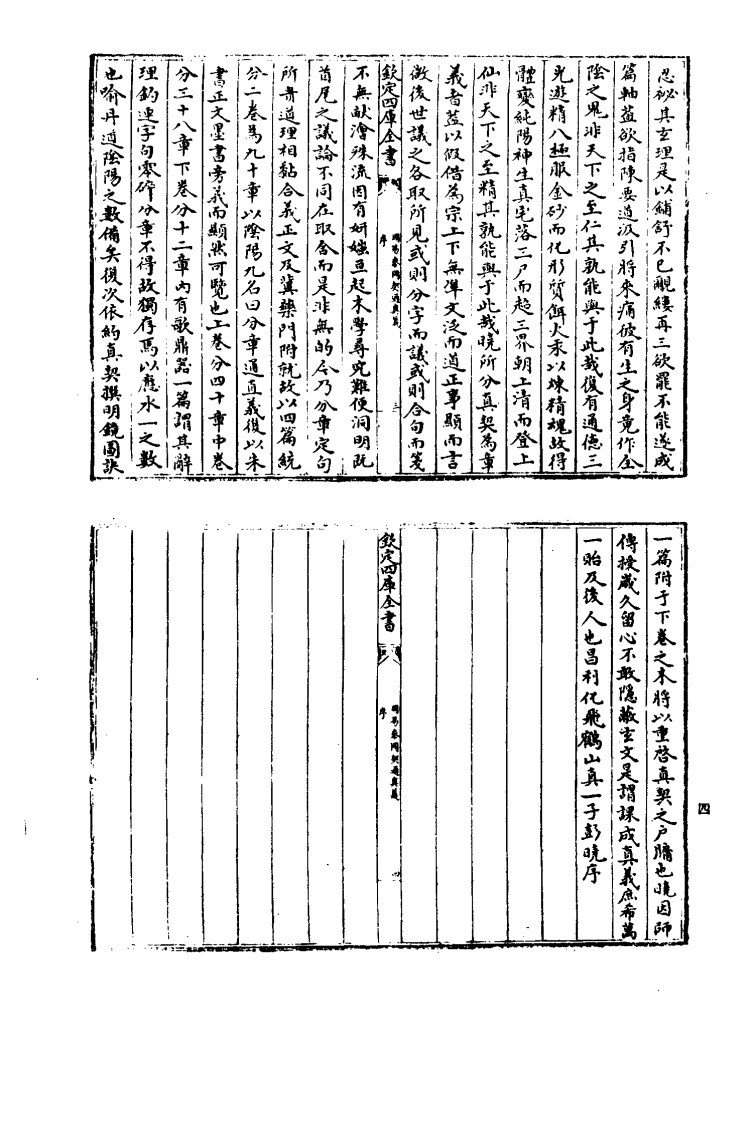 忍祕其玄理是以鋪舒不已覼縷再三欲罷不能遂成
篇軸蓋欲指陳要道汲引將來痛彼有生之身竟作全
陰之鬼非天下之至仁其孰能與于此哉復有通德三
光遊精八極服金砂而化形質餌火汞以煉精魂故得
體變純陽神生真宅落三尸而超三界朝上清而登上
仙非天下之至精其孰能與于此哉曉所分真契為章
義者蓋以假借為宗上下無準文泛而道正事顯而言
微後世議之各取所見或則分字而議或則合句而箋
欽定四庫全書
周易參同契通真義
序
三
不無畎澮殊流因有妍媸互起末學尋究難便洞明既
首尾之議論不同在取舍而是非無的今乃分章定句
所貴道理相黏合義正文及冀藥門附就故以四篇統
分三卷為九十章以陰陽九名曰分章通真義復以朱
書正文墨書旁義而顯然可覽也上卷分四十章中卷
分三十八章下卷分十二章內有歌鼎器一篇謂其辭
理鉤連字句零碎分章不得故獨存焉以應水一之數
也喻丹道陰陽之數備矣復次依約真契撰明鏡圖訣
一篇附于下卷之末將以重啓真契之户牖也曉因師
傳授歲久留心不敢隱蔽玄文是謂課成真義庶希萬
一貽及後人也昌利化飛鶴山真一子彭曉序
欽定四庫全書
周易參同契通真義
序
四
四